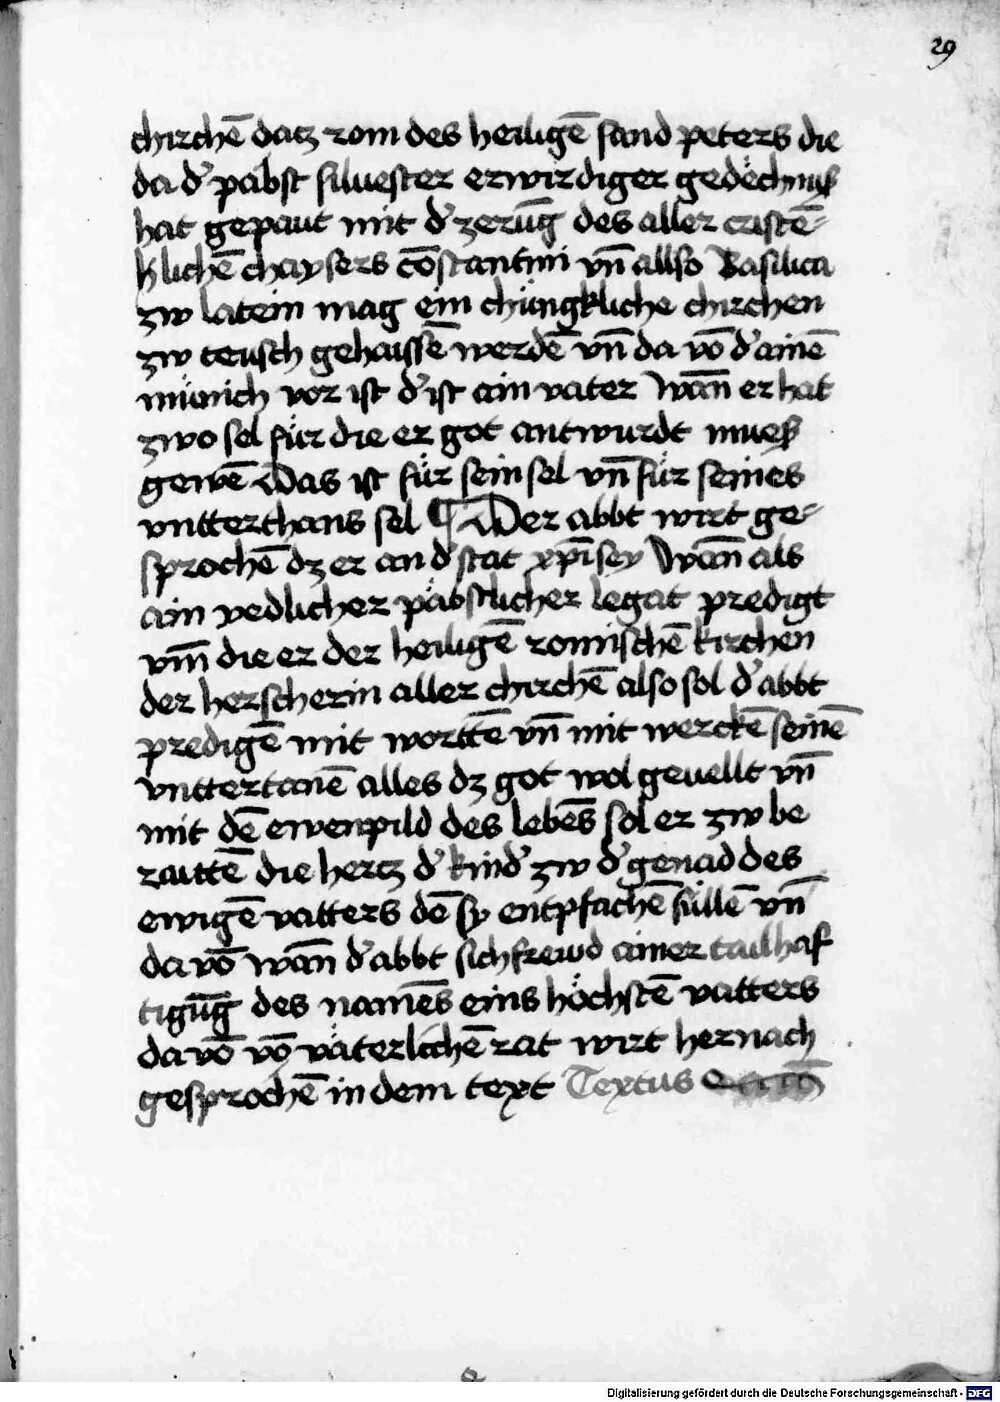 29
chirchē datz rom des heiligē sand peters die
da d' pabst siluester erwirdiger gedëchnuß
hat gepaut mit d' zerūg des aller cristē-
klichē chaysers cōstantini vn̄ allso Basilica
zw latein mag ein chüngkliche chirchen
zw teusch gehaissē werdē vn̄ da vō d' ainē
münich vor ist d' ist ain vater Wān er hat
zwo sel für die er got antwurdt mueß
gewē Das ist für sein sel vn̄ für seines
vntterthans sel ¶ Der abbt wirt ge-
sprochē dz er an d' stat xp̄i sey Wān als
ain yedlicher päbstlicher legat predigt
vm̄ die er der heiligē romischē kirchen
der herscherin aller chirchē also sol d' abbt
predigē mit worttē vn̄ mit werckē seinē
vnttertanē alles dz got wol geuellt vn̄
mit dē ewenpild des lebēs sol er zw be
raittē die hertz d' kind' zw d' genad des
ewigē vatters dē sy entpfachē süllē vn̄
da vō wān d' abbt sich frewd ainer tailhaf
tigūg des namēs eins höchstē vatters
da vō vō väterlichē rat wirt hernach
gesprochē in dem text Textus
Digitalisierung gefördert durch die Deutsche Forschungsgemeinschaft - DFG